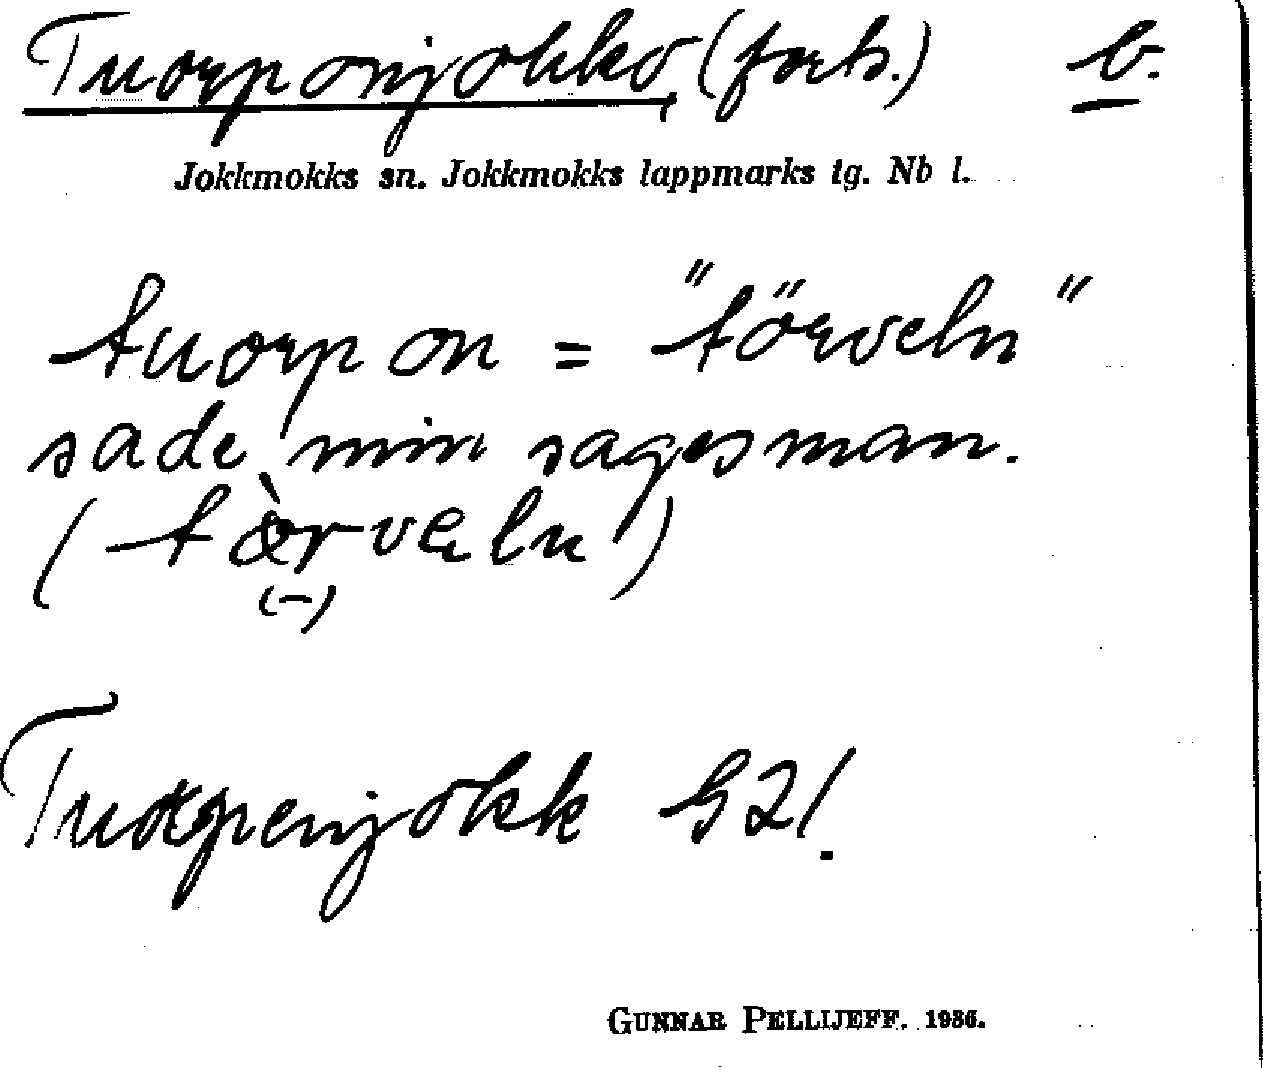 Tuorponjokko, (forts.) b.
Jokkmokks sn. Jokkmokks lappmarks tg. Nb l.
tuorpon = "törveln"
sade min sagesman.
(tòrveln)
(-)
Tuorpenjåkk 52!
GUNNAR PELLIJEFF. 1936.